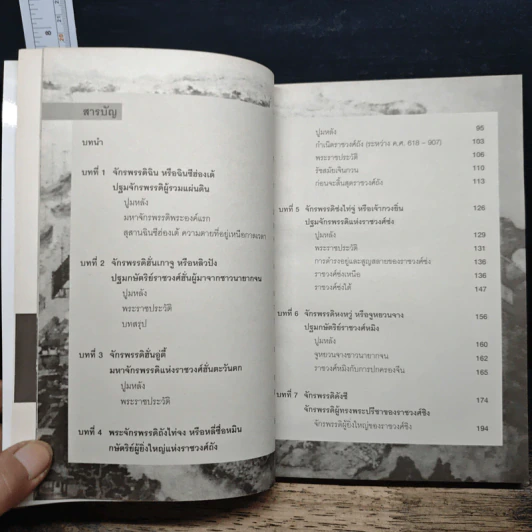 สารบัญ
บทนำ
บทที่ 1 จักรพรรดิฉิน หรือจิ๋นซีฮ่องเต้
ปฐมจักรพรรดิผู้รวมแผ่นดิน
ปูมหลัง
มหาจักรพรรดิพระองค์แรก
สุสานจิ๋นซีฮ่องเต้ ความตายที่อยู่เหนือกาลเวลา
บทที่ 2 จักรพรรดิฮั่นเกาจู หรือหลิวปัง
ปฐมกษัตริย์ราชวงศ์ฮั่นผู้มาจากชาวนายากจน
ปูมหลัง
พระราชประวัติ
บทสรุป
บทที่ 3 จักรพรรดิฮั่นอู่ตี้
มหาจักรพรรดิแห่งราชวงศ์ฮั่นตะวันตก
ปูมหลัง
พระราชประวัติ
บทที่ 4 พระจักรพรรดิถังไท่จง หรือหลี่ซื่อหมิน
กษัตริย์ผู้ยิ่งใหญ่แห่งราชวงศ์ถัง
ปูมหลัง 95
กำเนิดราชวงศ์ถัง (ระหว่าง ค.ศ. 618 – 907) 103
พระราชประวัติ 106
รัชสมัยเจินกวน 110
ก่อนจะสิ้นสุดราชวงศ์ถัง 113
บทที่ 5 จักรพรรดิซ่งไท่จู่ หรือเจ้ากวงอิ้น 126
ปฐมจักรพรรดิแห่งราชวงศ์ซ่ง
ปูมหลัง 129
พระราชประวัติ 131
การดำรงอยู่และสูญสลายของราชวงศ์ซ่ง 136
ราชวงศ์ซ่งเหนือ 136
ราชวงศ์ซ่งใต้ 147
บทที่ 6 จักรพรรดิหงหวู่ หรือจูหยวนจาง 156
ปฐมกษัตริย์ราชวงศ์หมิง
ปูมหลัง 160
จูหยวนจางชาวนายากจน 162
ราชวงศ์หมิงกับการปกครองจีน 165
บทที่ 7 จักรพรรดิคังซี 174
จักรพรรดิผู้ทรงพระปรีชาของราชวงศ์ชิง
จักรพรรดิผู้ยิ่งใหญ่ของราชวงศ์ชิง 194